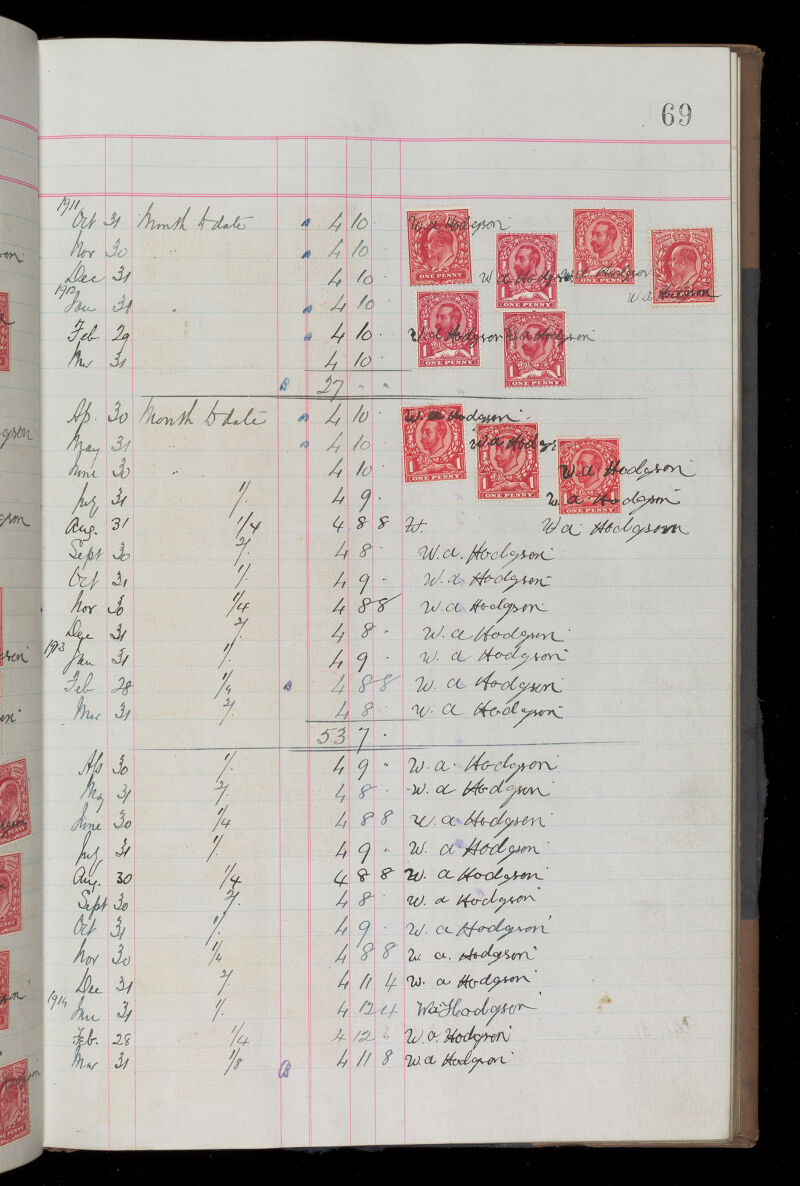 69
1911
Oct 31 Month to date 4 10 · W. a Hodgson
Nov 30 " 4 10 ·
Dec 31 4 10 · W a Hodgson W. a Hodgson
1912
Jan 31 " 4 10 · W a Hodgson
Feb 29 4 10 · W. a Hodgson W a Hodgson
Mar 31 4 10 ·
B 27 " "
Ap. 30 Month to date 4 10 · W a Hodgson
May 31 4 10 · W a Hodgs
June 30 " 4 10 · W. a Hodgson
July 31 1/. 4 9 · W. a Hodgson
Aug. 31 1/4 4 8 8 W. W a Hodgson
Sept 30 2/. 4 8 · W. a. Hodgson
Oct 31 1/. 4 9 · W. a Hodgson
Nov 30 1/4 4 8 8 W. a Hodgson
Dec 31 2/. 4 8 · W. a Hodgson
1913
Jan 31 1/. 4 9 · W. a Hodgson
Feb 28 1/4 4 8 8 W. a Hodgson
Mar 31 2/. 4 8 · W. a Hodgson
53 7 ·
Ap 30 1/. 4 9 " W. a Hodgson
May 31 2/. 4 8 · W. a Hodgson
June 30 1/4 4 8 8 W. a Hodgson
July 31 1/. 4 9 " W. a Hodgson
Aug. 30 1/4 4 8 8 W. a Hodgson
Sept 30 2/. 4 8 · W. a Hodgson
Oct 31 1/. 4 9 · W. a Hodgson
Nov 30 1/4 4 8 8 W. a. Hodgson
Dec 31 2/. 4 11 4 W. a Hodgson
1914
Jan 31 1/. 4 12 4 W a Hodgson
Feb. 28 1/4 4 12 · W. a. Hodgson
Mar 31 1/8 B 4 11 8 W. a Hodgson
ONE PENNY
ONE PENNY
ONE PENNY
ONE PENNY
ONE PENNY
ONE PENNY
ONE PENNY
ONE PENNY
ONE PENNY